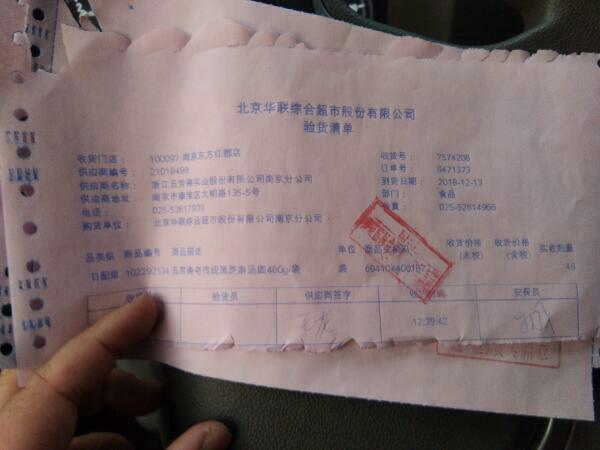 北京华联综合超市股份有限公司
验货清单
收货门店： 100097 南京东方红郡店 收货号： 7574206
供应商编号： 21018498 订单号： 6471373
供应商名称： 浙江五芳斋实业股份有限公司南京分公司 到货日期： 2016-12-13
供应商地址： 南京市秦淮区大明路135-5号 部门： 食品
电话： 025-52617939 传真： 025-52614966
购货单位： 北京华联综合超市股份有限公司南京分公司
品类组 商品编号 商品描述 单位 商品 收货价格(未税) 收货价格(含税) 实收数量
日配组 102292534 五芳斋老传统黑芝麻汤圆460g/袋 袋 46
验货员 供应商签字 安保员
12:39:42